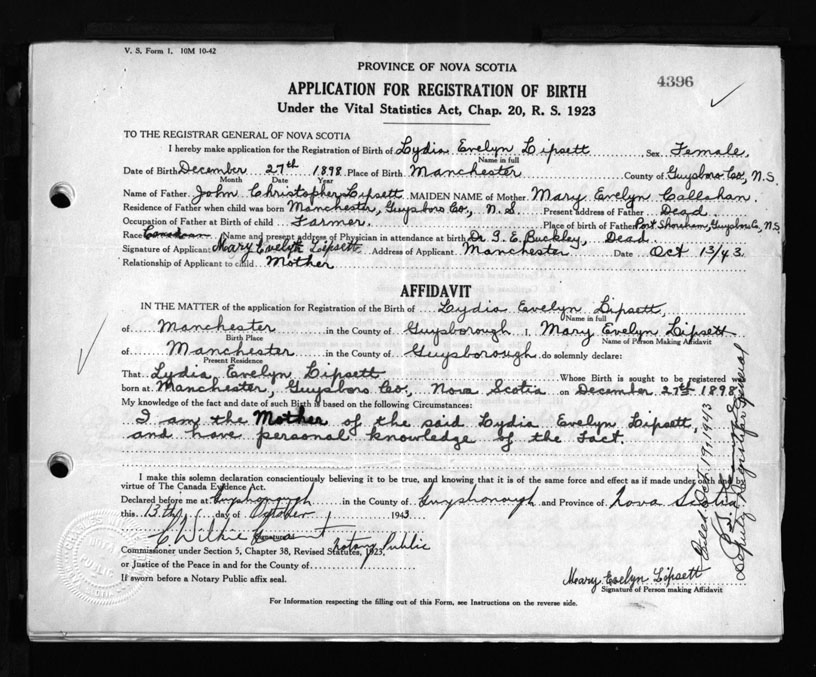 V. S. Form 1. 10M 10-42
PROVINCE OF NOVA SCOTIA
4396
APPLICATION FOR REGISTRATION OF BIRTH
Under the Vital Statistics Act, Chap. 20, R. S. 1923
TO THE REGISTRAR GENERAL OF NOVA SCOTIA
I hereby make application for the Registration of Birth of Lydia Evelyn Lipsett, Sex Female.
Name in full
Date of Birth December 27th 1898 Place of Birth Manchester County of Guysboro Co., N.S.
Month Date Year
Name of Father John Christopher Lipsett MAIDEN NAME of Mother Mary Evelyn Callahan.
Residence of Father when child was born Manchester, Guysboro Co., N.S. Present address of Father Dead.
Occupation of Father at Birth of child Farmer. Place of birth of Father Port Shoreham, Guysboro Co, N.S.
Race Canadian Name and present address of Physician in attendance at birth Dr G. E. Buckley, Dead.
Signature of Applicant Mary Evelyn Lipsett Address of Applicant Manchester Date Oct 13/43
Relationship of Applicant to child Mother
AFFIDAVIT
IN THE MATTER of the application for Registration of the Birth of Lydia Evelyn Lipsett,
Name in full
of Manchester in the County of Guysborough I, Mary Evelyn Lipsett
Birth Place Name of Person Making Affidavit
of Manchester in the County of Guysborough do solemnly declare:
Present Residence
That Lydia Evelyn Lipsett Whose Birth is sought to be registered was
born at Manchester, Guysboro Co., Nova Scotia on December 27th 1898
My knowledge of the fact and date of such Birth is based on the following Circumstances:
I am the Mother of the said Lydia Evelyn Lipsett,
and have personal knowledge of the fact.
I make this solemn declaration conscientiously believing it to be true, and knowing that it is of the same force and effect as if made under oath and by
virtue of The Canada Evidence Act.
Declared before me at Guysborough in the County of Guysborough and Province of Nova Scotia
this 13th day of October 1943
C Wilkie
Signature
Notary Public
Commissioner under Section 5, Chapter 38, Revised Statutes, 1923,
or Justice of the Peace in and for the County of
If sworn before a Notary Public affix seal.
Mary Evelyn Lipsett
Signature of Person making Affidavit
For Information respecting the filling out of this Form, see Instructions on the reverse side.
Filed Oct. 19, 1943
Deputy Registrar General